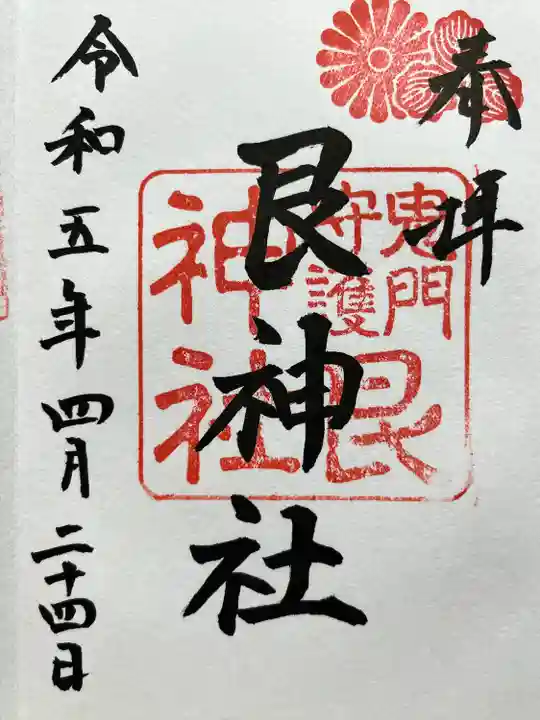 奉拝
艮神社
鬼門
守護
艮
神社
令和五年四月二十四日